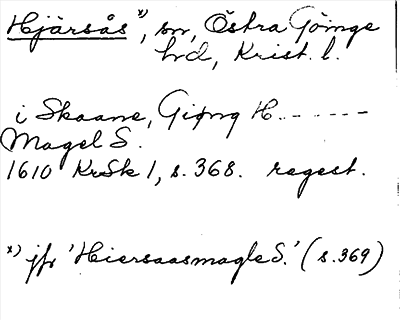 Hjärsås *), sn, Östra Göinge
hrd, Krist. l.
i Skaane, Giøng H. - - - - - -
Magel S.
1610 KrSk 1, s. 368. regest.
*) jfr 'Hiersaasmagle S.' (s. 369)